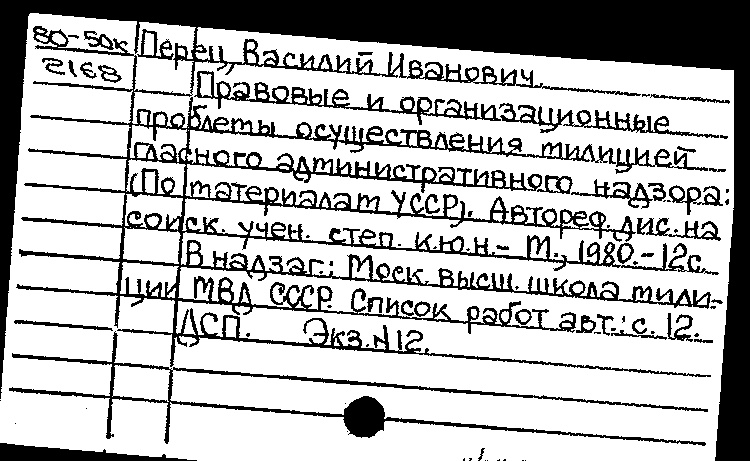 80-50к Перец, Василий Иванович.
2168
Правовые и организационные
проблемы осуществления милицией
гласного административного надзора:
(По материалам УССР). Автореф. дис. на
соиск. учен. степ. к.ю.н.- М., 1980.-12с.
В надзаг.: Моск. высш. школа мили-
ции МВД СССР. Список работ авт.: с. 12.
ДСП. Экз.N12.